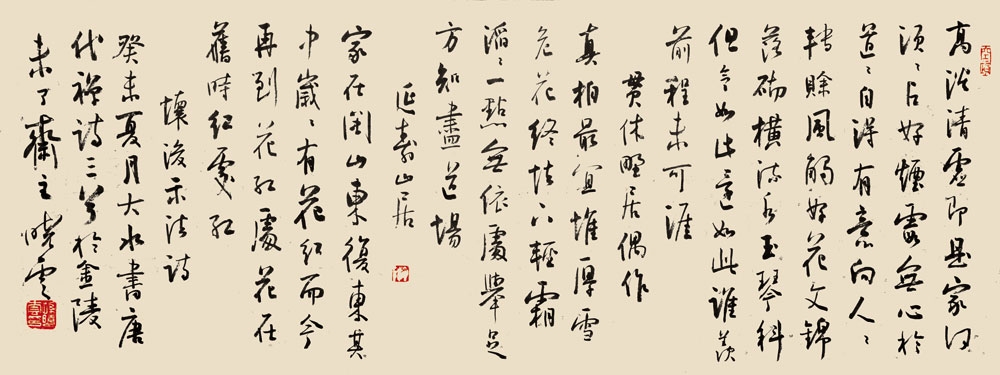 高淡清虛即是家何
須〻占好煙霞無心於
道〻自得有意向人〻
轉賒風觸好花文錦
落砌橫流水玉琴斜
但令如此還如此誰羨
前程未可涯
貫休野居偶作
真柏最宜堆厚雪
危花終怯下輕霜
滔〻一點無依處舉足
方知盡道場
延壽山居
家在閩山東復東其
中歲〻有花紅而今
再到花紅處花在
舊時紅處紅
懷浚示法詩
癸未夏月大水書唐
代禪詩三首於金陵
未了齋主曉雲